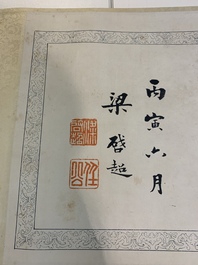 丙寅六月
梁啓超